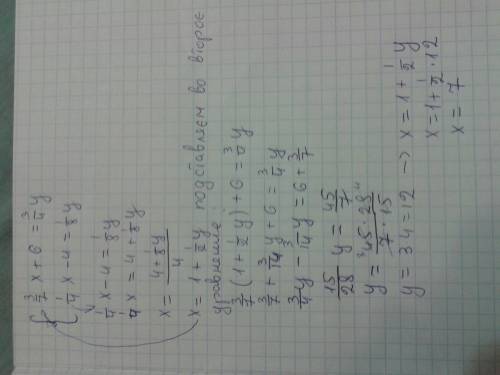 { 3/7 x + 6 = 3/4 y
1/4 x - 4 = 1/8 y
1/4 x - 4 = 1/8 y
1/4 x = 4 + 1/8 y
x = (4 + 1/8 y)/4
x = 1 + 1/2 y подставляем во второе
уравнение:
3/7 (1 + 1/2 y) + 6 = 3/4 y
3/7 + 3/14 y + 6 = 3/4 y
3/4 y - 3/14 y = 6 + 3/7
15/28 y = 45/7
y = 45·28/7·15
y = 3 4 = 12 -> x = 1 + 1/2 y
x = 1 + 1/2 · 12
x = 7